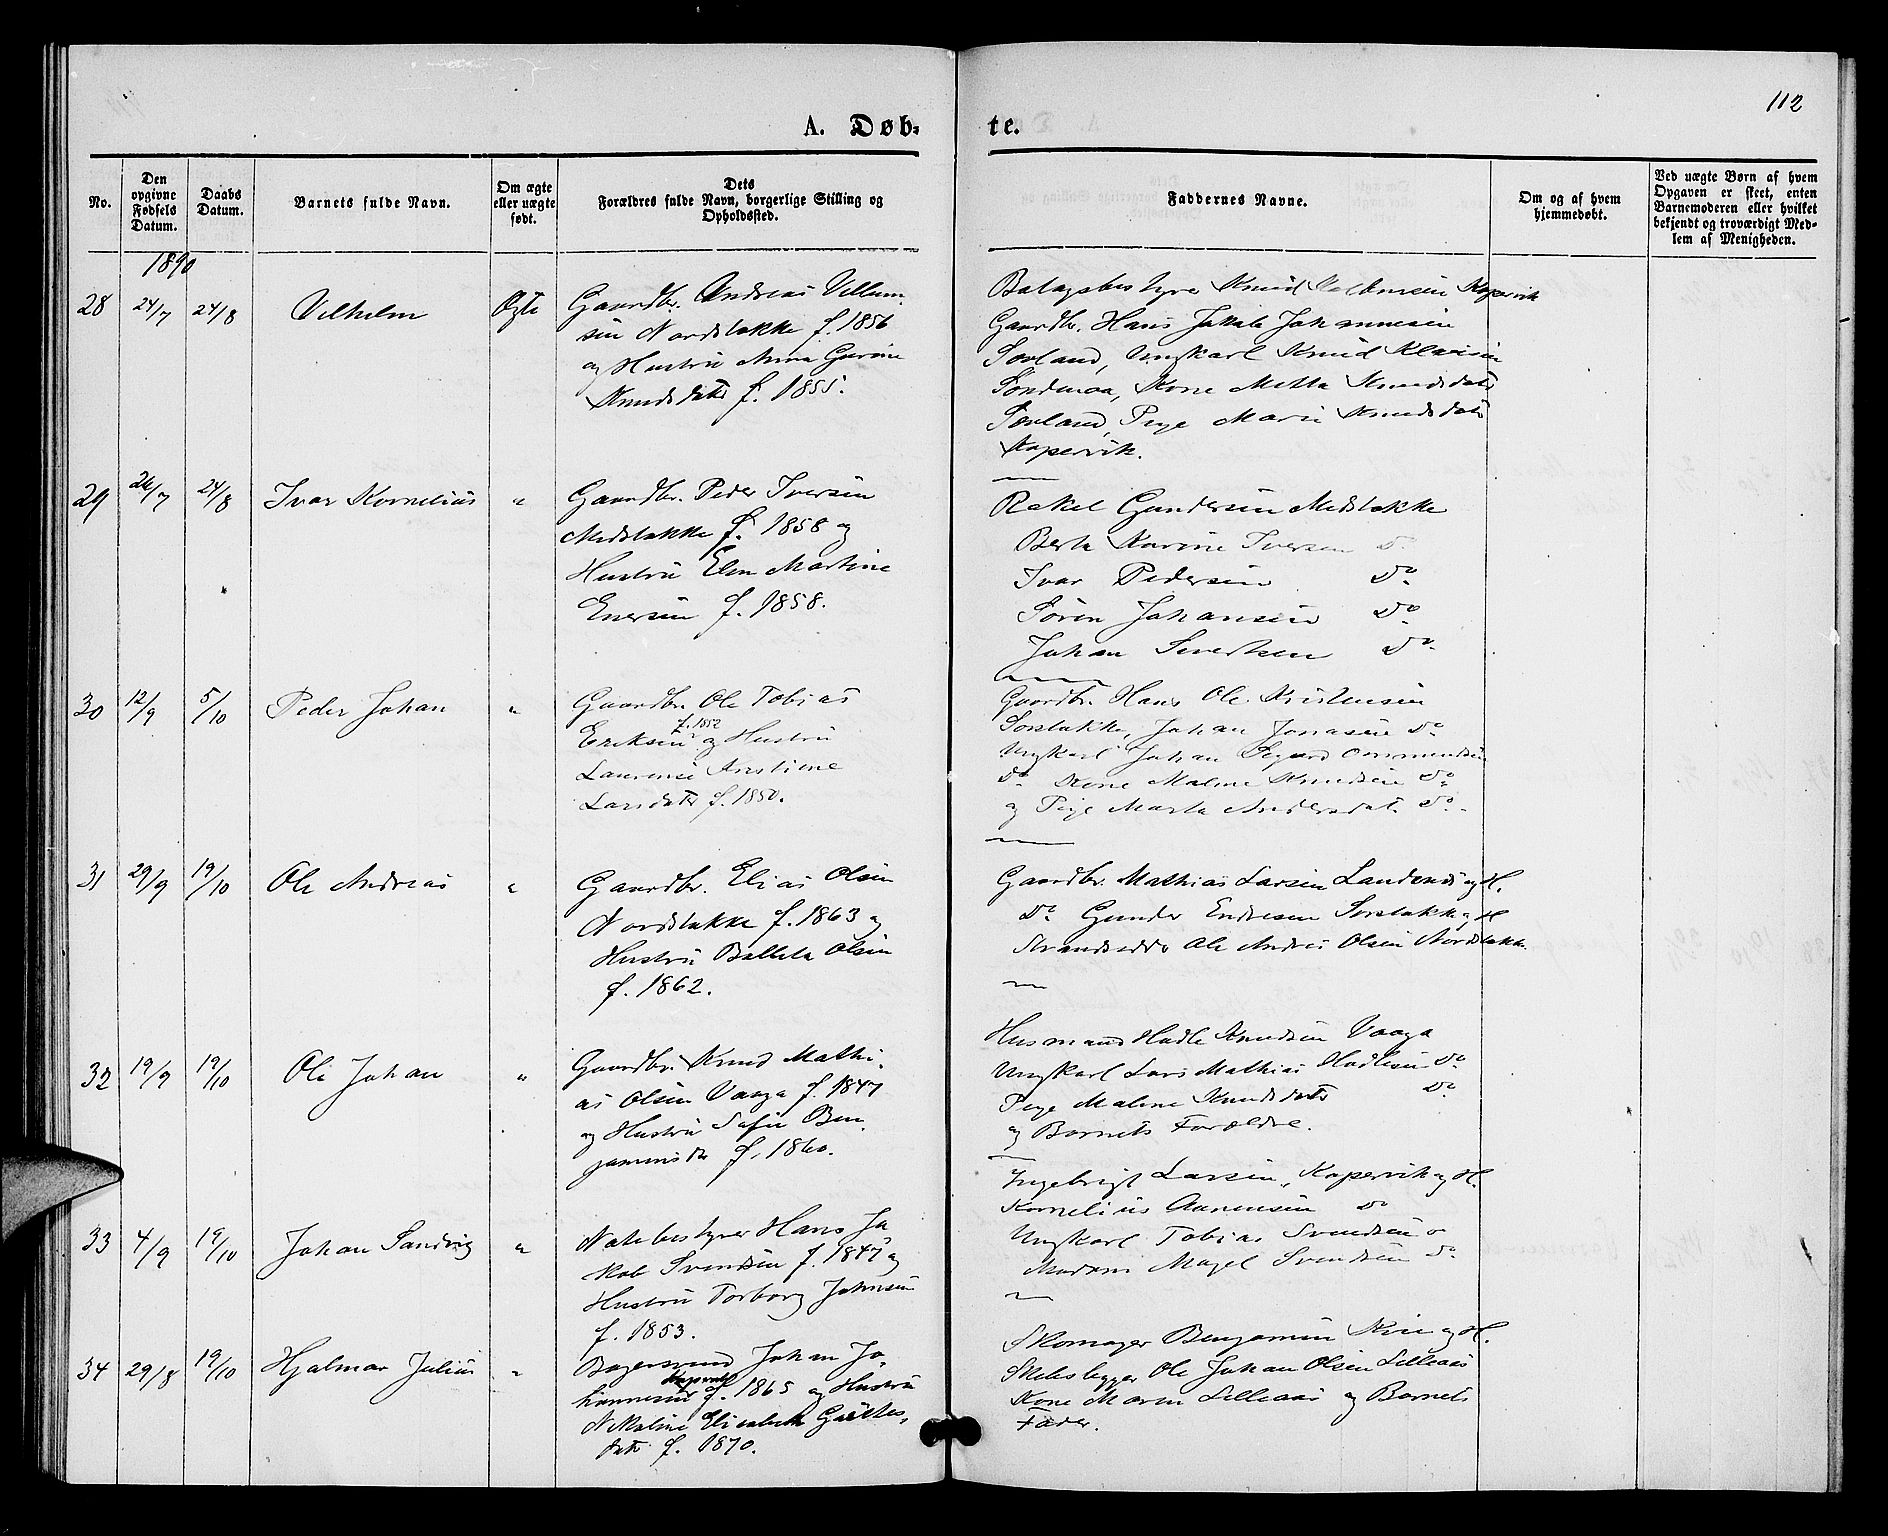 112
A. Døb-
te.
No.
Den
opgivne
Fødsels
Datum.
Daabs
Datum.
Barnets fulde Navn.
Om ægte
eller uægte
født.
Dets
Forældres fulde Navn, borgerlige Stilling og
Opholdssted.
Faddernes Navne.
Om og af hvem
hjemmedøbt.
Ved uægte Børn af hvem
Opgaven er skeet, enten
Barnemoderen eller hvilket
bekjendt og troværdigt Med-
lem af Menigheden.
1890
28 24/7 24/8 Vilhelm Ægte
Gaardbr. Andreas Villum-
sen Nordstokke f. 1856
og Hustru Anna Gurine
Knudsdatr f. 1855.
Knud Kopervik
Gaardbr. Hans Jakob Johannesen
Sørland, Ungkarl Knud
Kone Metta Knudsdatr
Sørland, Pige Mari Knudsdatr
Kopervik.
29 26/7 24/8 Ivar Kornelius "
Gaardbr. Peder Iversen
Medstokke f. 1858 og
Hustru Elen Martine
Enersen f. 1858.
Rakel Gundersen Medstokke
Berta Karine Iversen do
Ivar Pedersen do
Søren Johansen do
Johan Sivertsen do
30 12/9 5/10 Peder Johan "
Gaardbr. Ole Tobias
f. 1852
Eriksen og Hustru
Laurense Kristine
Larsdatr f. 1850.
Gaardbr. Hans Ole Kristensen
Sørstokke, Johan Jonasen do
Ungkarl Johan Sigurd Ommundsen
do Kone Malene Knudsen do
og Pige Marta Andersdat. do
31 29/9 19/10 Ole Andreas "
Gaardbr. Elias Olsen
Nordstokke f. 1863 og
Hustru Olsen
f. 1862.
Gaardbr. Mathias Larsen og H.
do Gunder Endresen Sørstokke og H
Ole Andreas Olsen Nordstokke
32 19/9 19/10 Ole Johan "
Gaardbr. Knud Mathi-
as Olsen Vaaga f. 1847
og Hustru Sofie Ben-
jaminsdr f. 1860.
Husmand Hadle Knudsen Vaaga
Ungkarl Lars Mathias Hadlesen do
Pige Malene Knudsdatr do
og Barnets Forældre.
33 4/9 19/10 Johan Sandvig "
Notebestyrer Hans Ja-
kob Svendsen f. 1847 og
Hustru Torborg Johnsen
f. 1853.
Ingebrigt Larsen, Kopervik og H.
Kornelius Aanensen do
Ungkarl Tobias Svendsen do
Madam Magel Svendsen do
34 29/8 19/10 Hjalmar Julius "
Bagersvend Johan Jo-
Kopervik
hannesen f. 1865 og Hustru
Nikoline Elisabeth
datr f. 1870.
Skomager Benjamin og H.
Ole Johan Olsen Lilleaas
Kone Maren Lilleaas og Barnets
Fader.